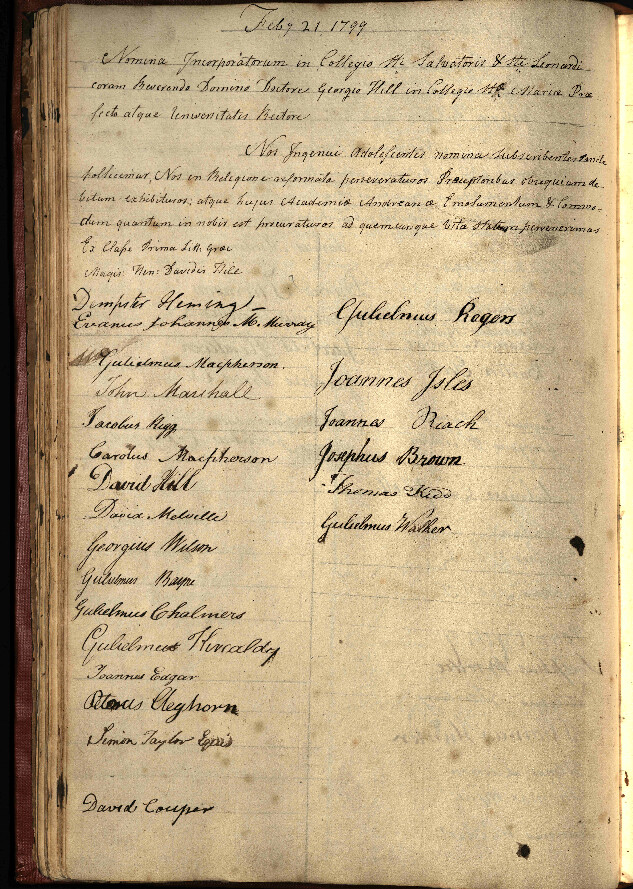 Feby 21 1799
Nomina Incorporatorum in Collegio Sti Salvatoris & Sti Leonardi
coram Reverendo Domino Doctore Georgio Hill in Collegio Stæ Mariæ Præ
fecto atque Universitatis Rectore
Nos Ingenui Adolescentes nomina subscribentes sancte
pollicemur, Nos in Religione reformata perseveraturos Præceptoribus obsequium de-
bitum exhibituros; atque hujus Academiæ Andreanæ Emolumentum & Commo-
dum quantum in nobis est procuraturos ad quemcunque Vitæ statum pervenerimus
Ex Classe Prima Litt. Græc
Magis: Hen: Davidis Hill
Dempster Heming
Evanus Johannes M. Murray
Gulielmus Macpherson.
John Marshall
Jacobus Rigg
Carolus Macpherson
David Hill
David Melville
Georgius Wilson
Gulielmus Bayne
Gulielmus Chalmers
Gulielmus Kircaldy
Joannes Edgar
Petrus Cleghorn
Simon Taylor
David Couper
Gulielmus Rogers
Joannes Isles
Joannes Reach
Josephus Brown
Thomas Kidd
Gulielmus Walker